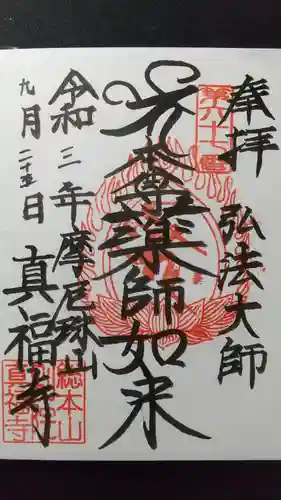 奉拝
弘法大師
第六十七番
本尊薬師如来
令和三年
九月二十五日
摩尼珠山
真福寺
総本山
真福寺